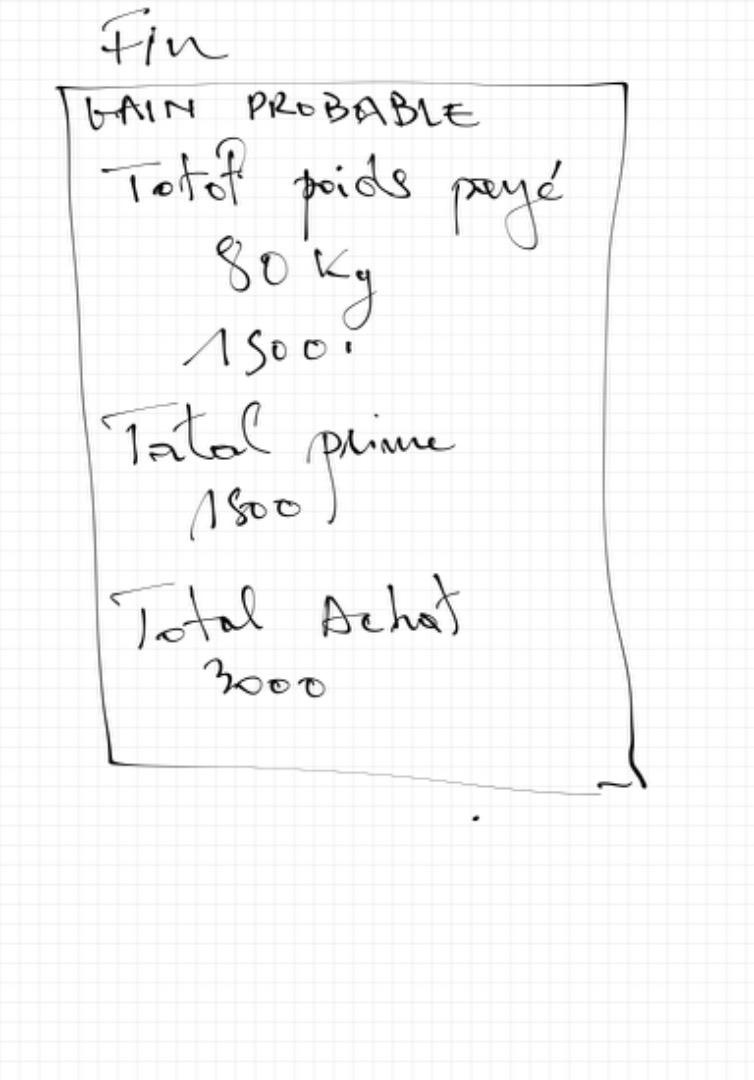 Fin
GAIN PROBABLE
Total poids payé
80 Kg
1500
Total prime
1500
Total Achat
3000